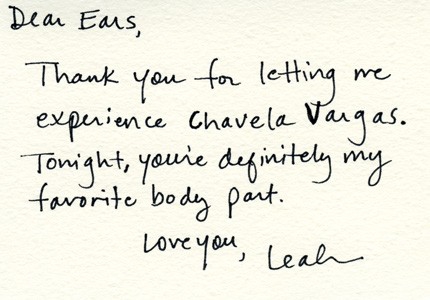 Dear Ears,
Thank you for letting me
experience Chavela Vargas.
Tonight, you're definitely my
favorite body part.
Love you,
Leah